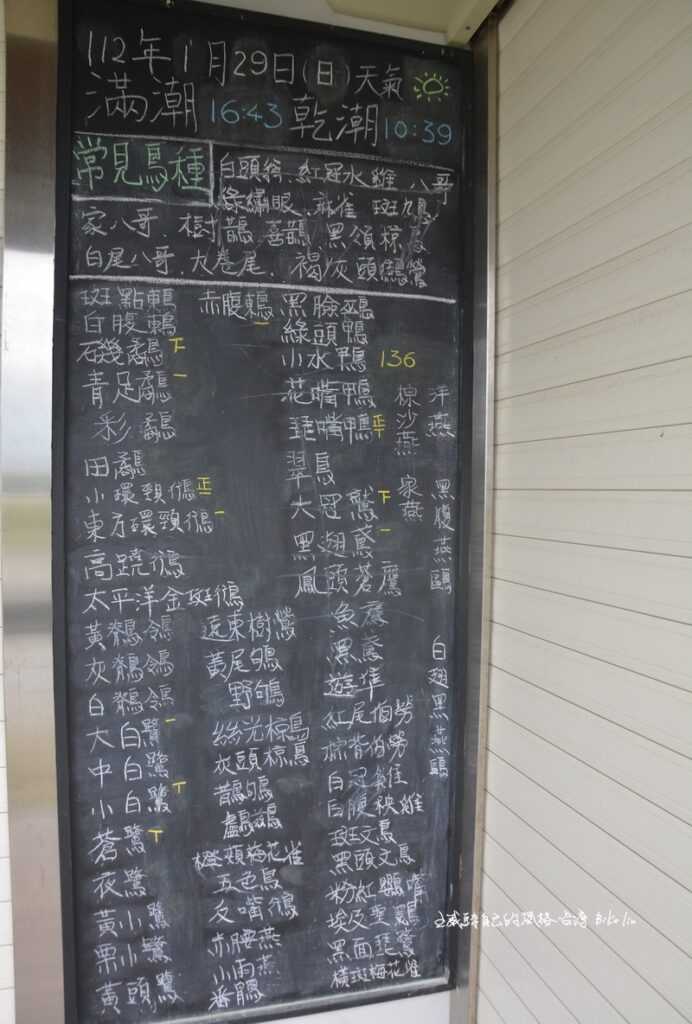 112年1月29日(日)天氣
滿潮16:43 乾潮10:39
常見鳥種
白頭翁.紅冠水雞.八哥
綠繡眼.麻雀 斑九鳥
家八哥.樹鵲 喜鵲 黑領椋鳥
白尾八哥.大卷尾.褐灰頭鷦鶯
斑點鶇
白腹鶇
磯鷸 下
青足鷸 一
彩鷸
田鷸
小環頸鴴 正
東方環頸鴴 一
高蹺鴴
太平洋金斑鴴
黃鶺鴒
灰鶺鴒
白鶺鴒
大白鷺 一
中白鷺
小白鷺 丅
蒼鷺 丅
夜鷺
黃小鷺
栗小鷺
黃頭鷺
赤腹鶇 一
遠東樹鶯
黃尾鴝
野鴝
絲光椋鳥
灰頭椋鳥
鵲鴝
橙頰梅花雀
五色鳥
反嘴鴴
赤腰燕
小雨燕
番鵑
黑臉鵐
綠頭鴨
小水鴨 136
花嘴鴨
琵嘴鴨 正
翠鳥
大冠鷲 下
黑翅鳶 一
鳳頭蒼鷹
魚鷹
黑鳶
遊隼
紅尾伯勞
棕背伯勞
白冠雞
白腹秧雞
斑文鳥
黑頭文鳥
粉紅鸚嘴
埃及聖鷄
黑面琵鷺
橫斑梅花雀
棕沙燕
家燕
洋燕
黑腹燕鷗
白翅黑燕鷗